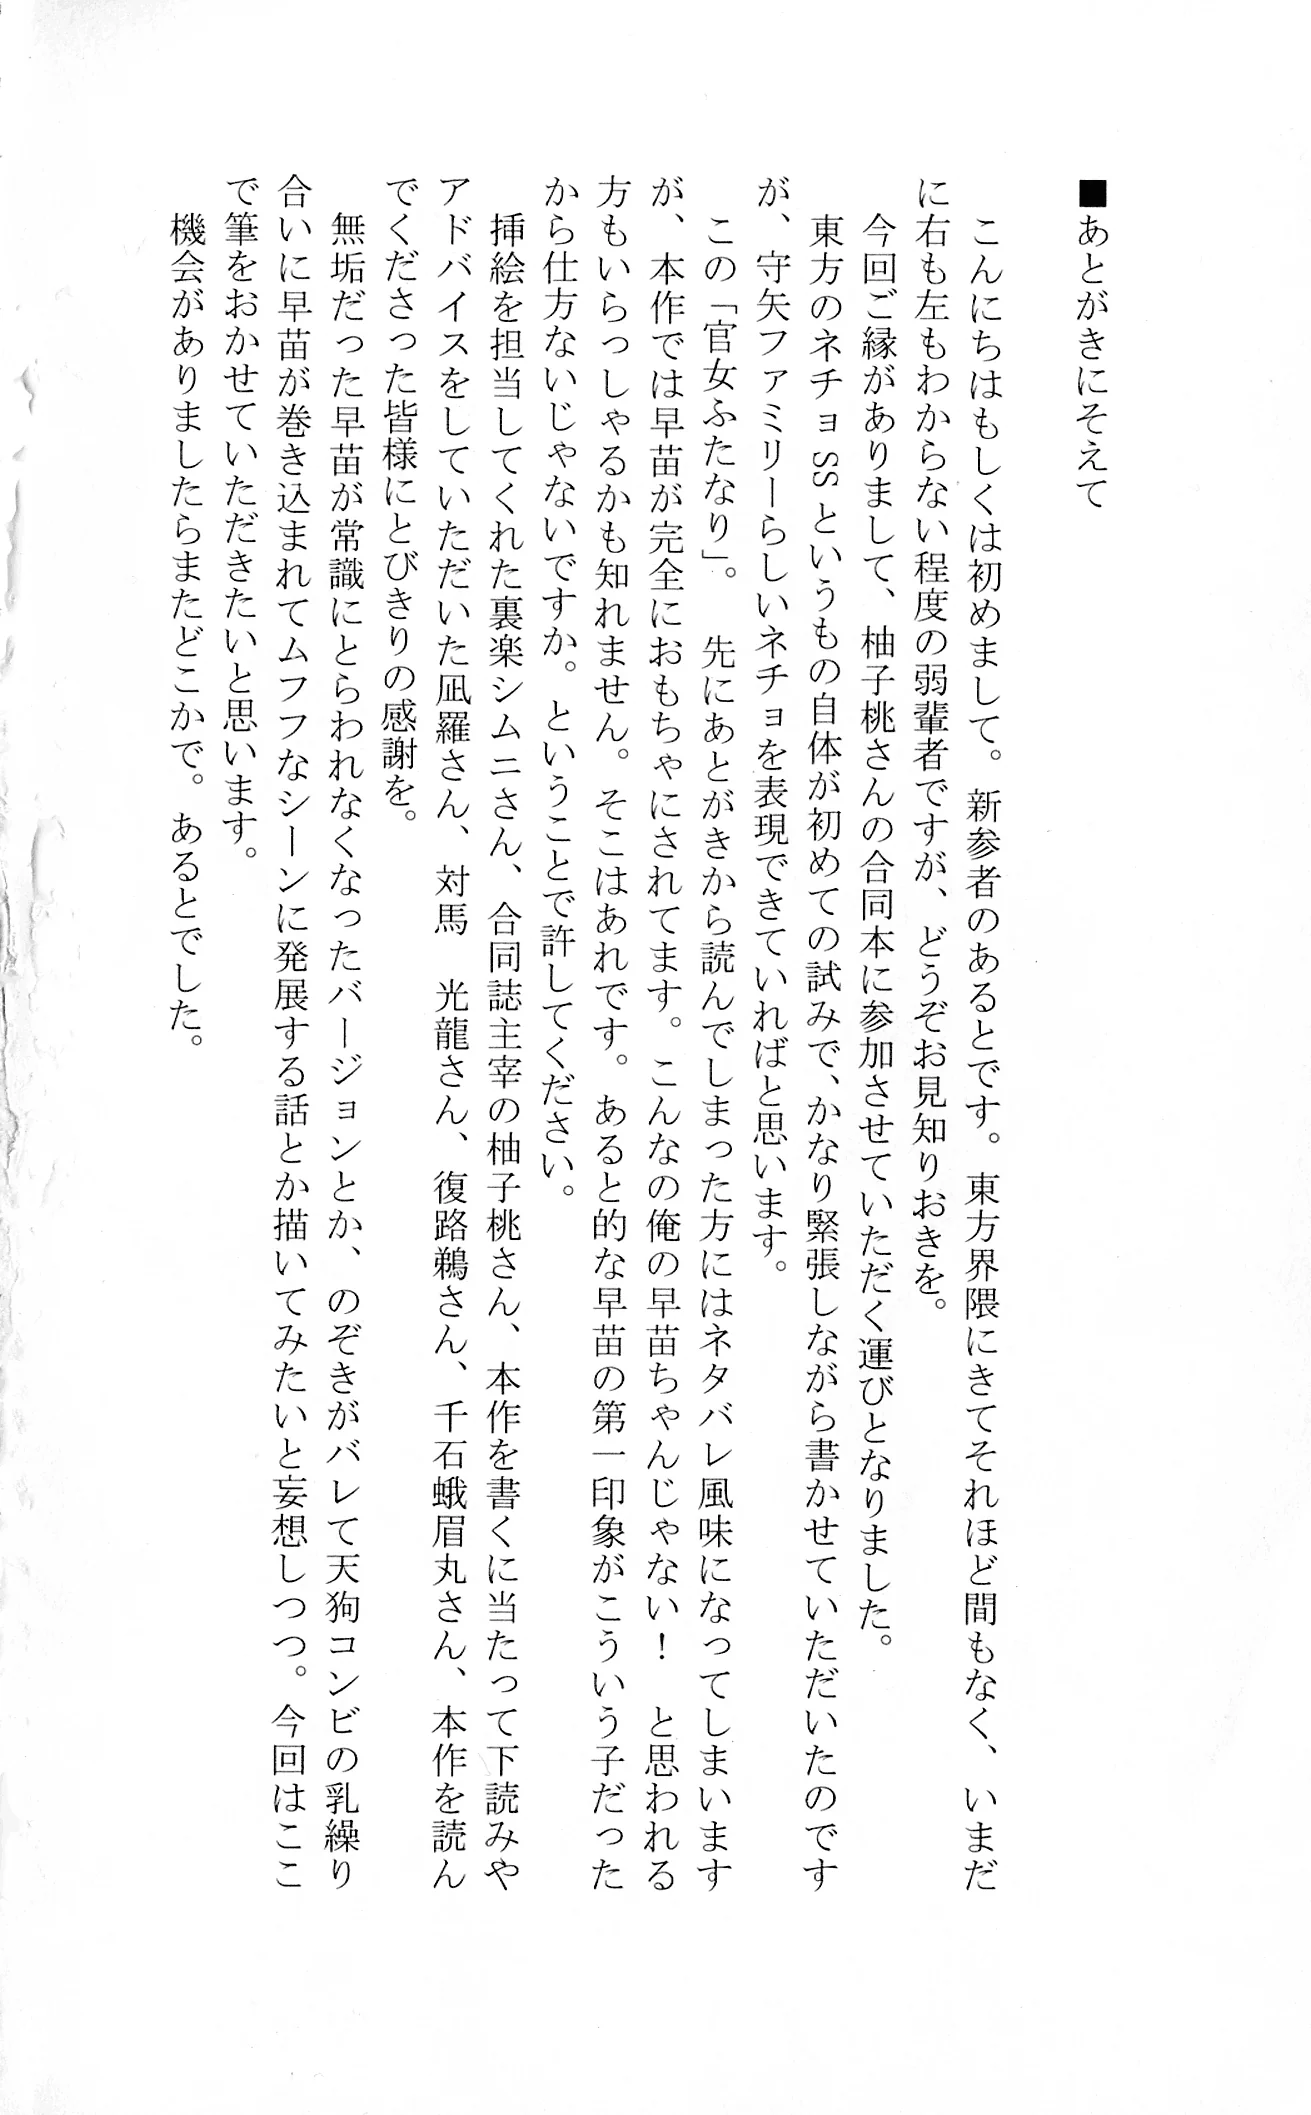 ■あとがきにそえて
こんにちはもしくは初めまして。新参者のあるとです。東方界隈にきてそれほど間もなく、いまだ
に右も左もわからない程度の弱輩者ですが、どうぞお見知りおきを。
今回ご縁がありまして、柚子桃さんの合同本に参加させていただく運びとなりました。
東方のネチョSSというもの自体が初めての試みで、かなり緊張しながら書かせていただいたのです
が、守矢ファミリーらしいネチョを表現できていればと思います。
この「官女ふたなり」。 先にあとがきから読んでしまった方にはネタバレ風味になってしまいます
が、本作では早苗が完全におもちゃにされてます。こんなの俺の早苗ちゃんじゃない! と思われる
方もいらっしゃるかも知れません。そこはあれです。あると的な早苗の第一印象がこういう子だった
から仕方ないじゃないですか。ということで許してください。
挿絵を担当してくれた裏楽シムニさん、合同誌主宰の柚子桃さん、本作を書くに当たって下読みや
アドバイスをしていただいた凪羅さん、対馬 光龍さん、復路鵜さん、千石蛾眉丸さん、本作を読ん
でくださった皆様にとびきりの感謝を。
無垢だった早苗が常識にとらわれなくなったバージョンとか、のぞきがバレて天狗コンビの乳繰り
合いに早苗が巻き込まれてムフフなシーンに発展する話とか描いてみたいと妄想しつつ。今回はここ
で筆をおかせていただきたいと思います。
機会がありましたらまたどこかで。あるとでした。